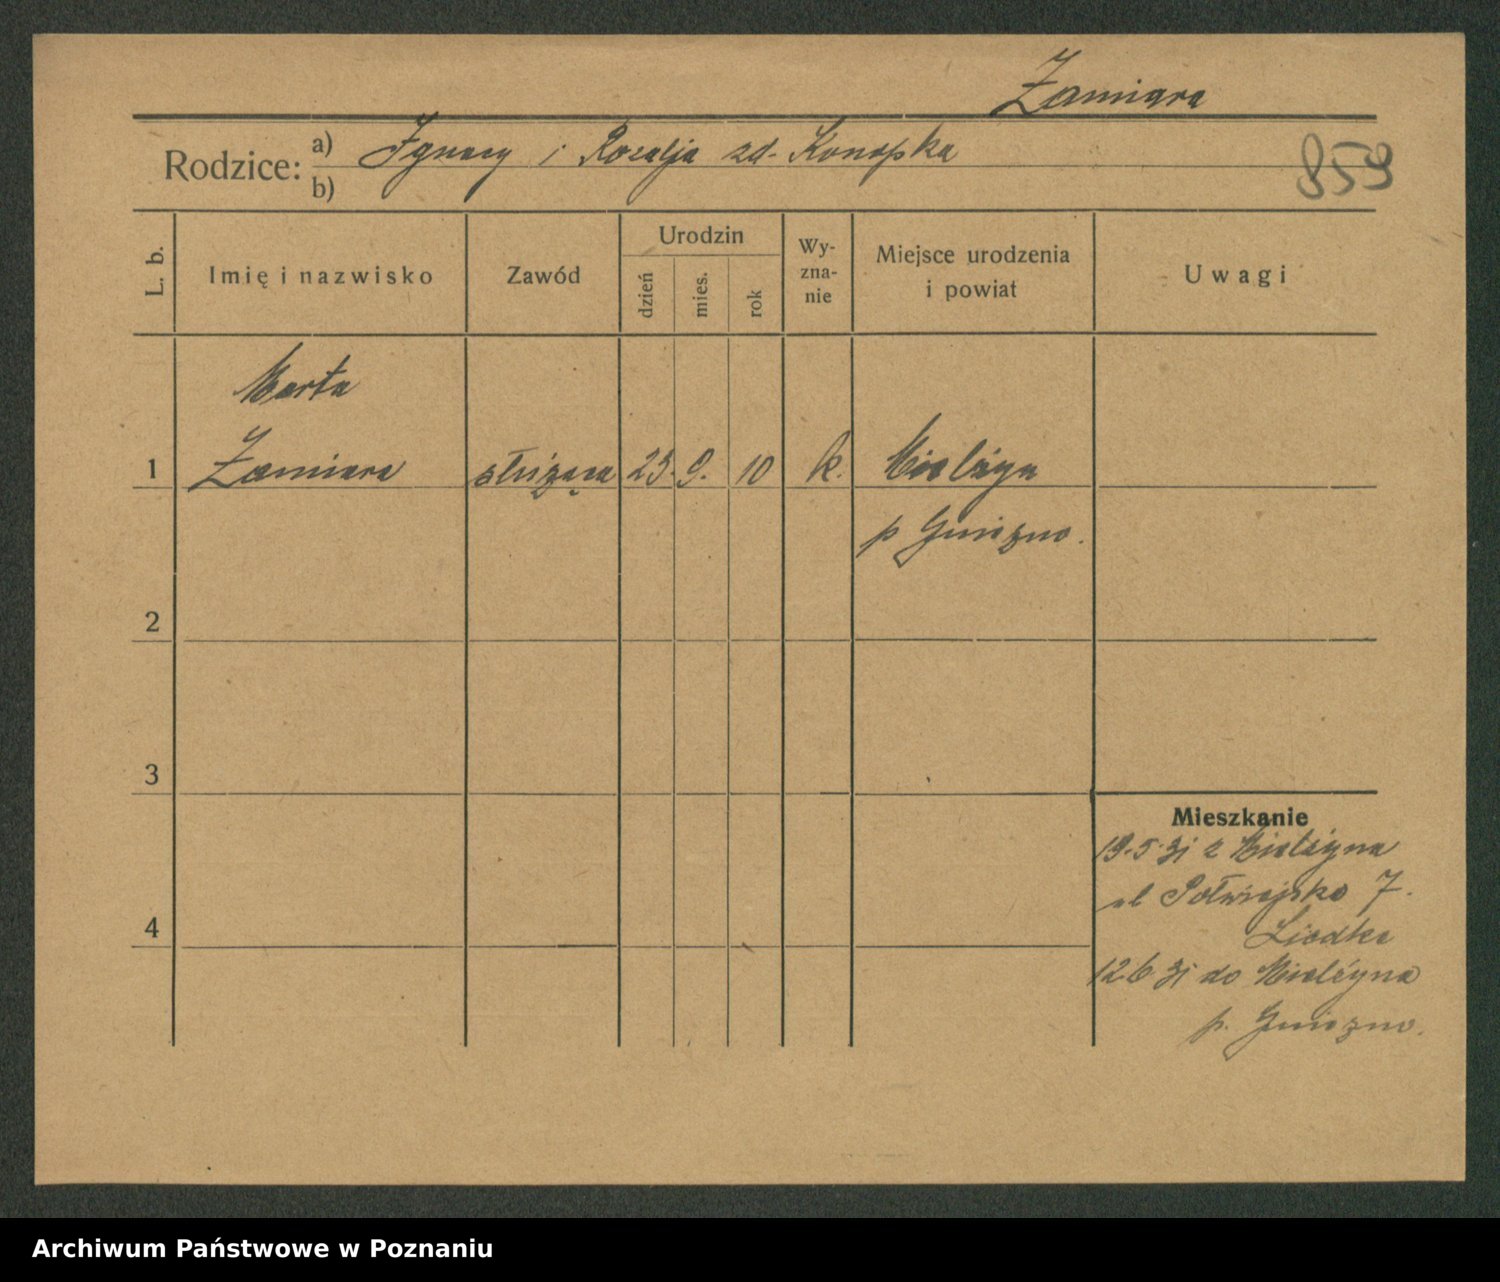 Zamiara
Rodzice: a) Ignacy i Rozalja zd. Konopka
b)
859
L. b.
Imię i nazwisko
Zawód
Urodzin
dzień
mies.
rok
Wy-
zna-
nie
Miejsce urodzenia
i powiat
Uwagi
Marta
1 Zamiara służąca 23. 9. 10 k. Mielżyn
p Gniezno.
2
3
4
Mieszkanie
19.5.31 z Mielżyna
ul Półwiejska 7.
12 6 31 do Mielżyna
p. Gniezno.
Archiwum Państwowe w Poznaniu